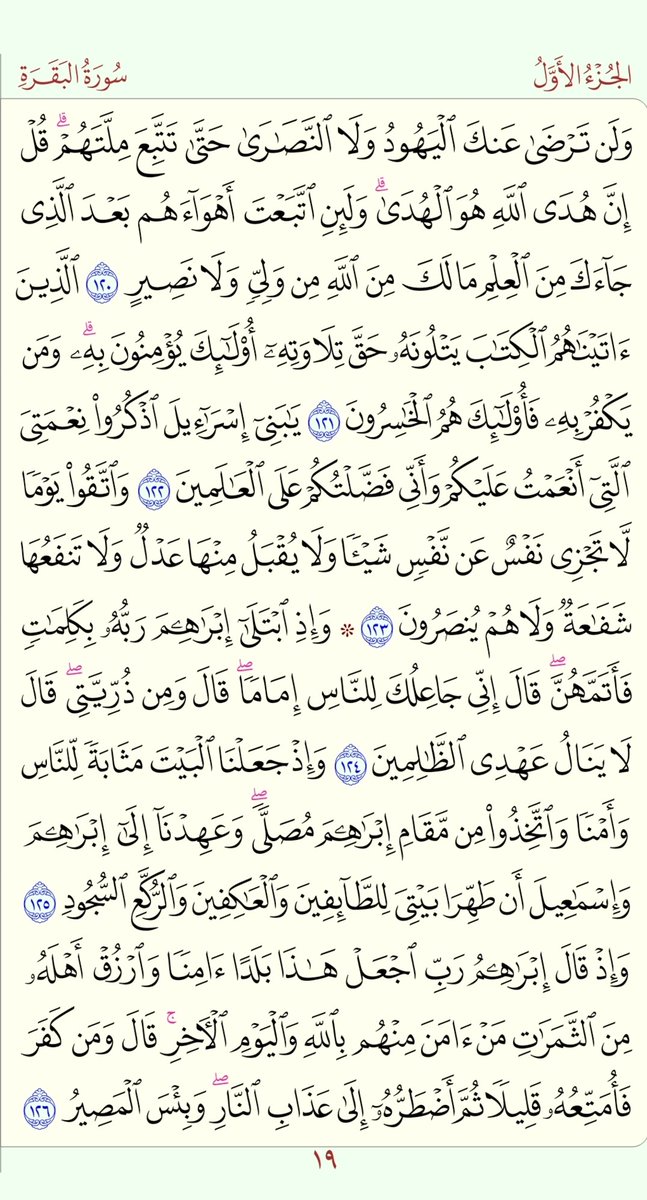 الجُزْءُ الأَوَّلُ
سُورَةُ البَقَرَةِ
وَلَن تَرْضَىٰ عَنكَ ٱلْيَهُودُ وَلَا ٱلنَّصَٰرَىٰ حَتَّىٰ تَتَّبِعَ مِلَّتَهُمْۗ قُلْ
إِنَّ هُدَى ٱللَّهِ هُوَ ٱلْهُدَىٰۗ وَلَئِنِ ٱتَّبَعْتَ أَهْوَآءَهُم بَعْدَ ٱلَّذِى
جَآءَكَ مِنَ ٱلْعِلْمِ مَا لَكَ مِنَ ٱللَّهِ مِن وَلِىٍّ وَلَا نَصِيرٍ ١٢٠ ٱلَّذِينَ
ءَاتَيْنَٰهُمُ ٱلْكِتَٰبَ يَتْلُونَهُۥ حَقَّ تِلَاوَتِهِۦٓ أُو۟لَٰٓئِكَ يُؤْمِنُونَ بِهِۦۗ وَمَن
يَكْفُرْ بِهِۦ فَأُو۟لَٰٓئِكَ هُمُ ٱلْخَٰسِرُونَ ١٢١ يَٰبَنِىٓ إِسْرَٰٓءِيلَ ٱذْكُرُوا۟ نِعْمَتِىَ
ٱلَّتِىٓ أَنْعَمْتُ عَلَيْكُمْ وَأَنِّى فَضَّلْتُكُمْ عَلَى ٱلْعَٰلَمِينَ ١٢٢ وَٱتَّقُوا۟ يَوْمًا
لَّا تَجْزِى نَفْسٌ عَن نَّفْسٍ شَيْـًٔا وَلَا يُقْبَلُ مِنْهَا عَدْلٌ وَلَا تَنفَعُهَا
شَفَٰعَةٌ وَلَا هُمْ يُنصَرُونَ ١٢٣ * وَإِذِ ٱبْتَلَىٰٓ إِبْرَٰهِـۧمَ رَبُّهُۥ بِكَلِمَٰتٍ
فَأَتَمَّهُنَّۖ قَالَ إِنِّى جَاعِلُكَ لِلنَّاسِ إِمَامًاۖ قَالَ وَمِن ذُرِّيَّتِىۖ قَالَ
لَا يَنَالُ عَهْدِى ٱلظَّٰلِمِينَ ١٢٤ وَإِذْ جَعَلْنَا ٱلْبَيْتَ مَثَابَةً لِّلنَّاسِ
وَأَمْنًا وَٱتَّخِذُوا۟ مِن مَّقَامِ إِبْرَٰهِـۧمَ مُصَلًّىۖ وَعَهِدْنَآ إِلَىٰٓ إِبْرَٰهِـۧمَ
وَإِسْمَٰعِيلَ أَن طَهِّرَا بَيْتِىَ لِلطَّآئِفِينَ وَٱلْعَٰكِفِينَ وَٱلرُّكَّعِ ٱلسُّجُودِ ١٢٥
وَإِذْ قَالَ إِبْرَٰهِـۧمُ رَبِّ ٱجْعَلْ هَٰذَا بَلَدًا ءَامِنًا وَٱرْزُقْ أَهْلَهُۥ
مِنَ ٱلثَّمَرَٰتِ مَنْ ءَامَنَ مِنْهُم بِٱللَّهِ وَٱلْيَوْمِ ٱلْـَٔاخِرِۚ قَالَ وَمَن كَفَرَ
فَأُمَتِّعُهُۥ قَلِيلًا ثُمَّ أَضْطَرُّهُۥٓ إِلَىٰ عَذَابِ ٱلنَّارِۖ وَبِئْسَ ٱلْمَصِيرُ ١٢٦
١٩